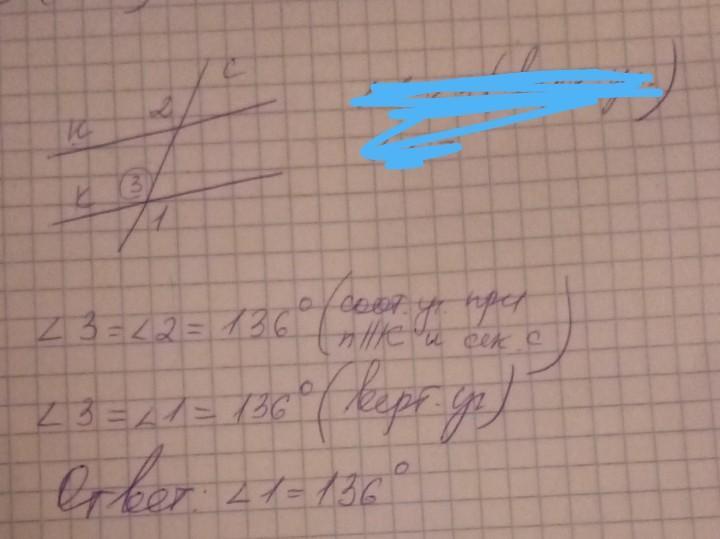 c
2
н
3
к
1
∠3=∠2=136° (соот. уг. при
n||к и сек. с)
∠3=∠1=136° (верт. уг)
Ответ: ∠1=136°